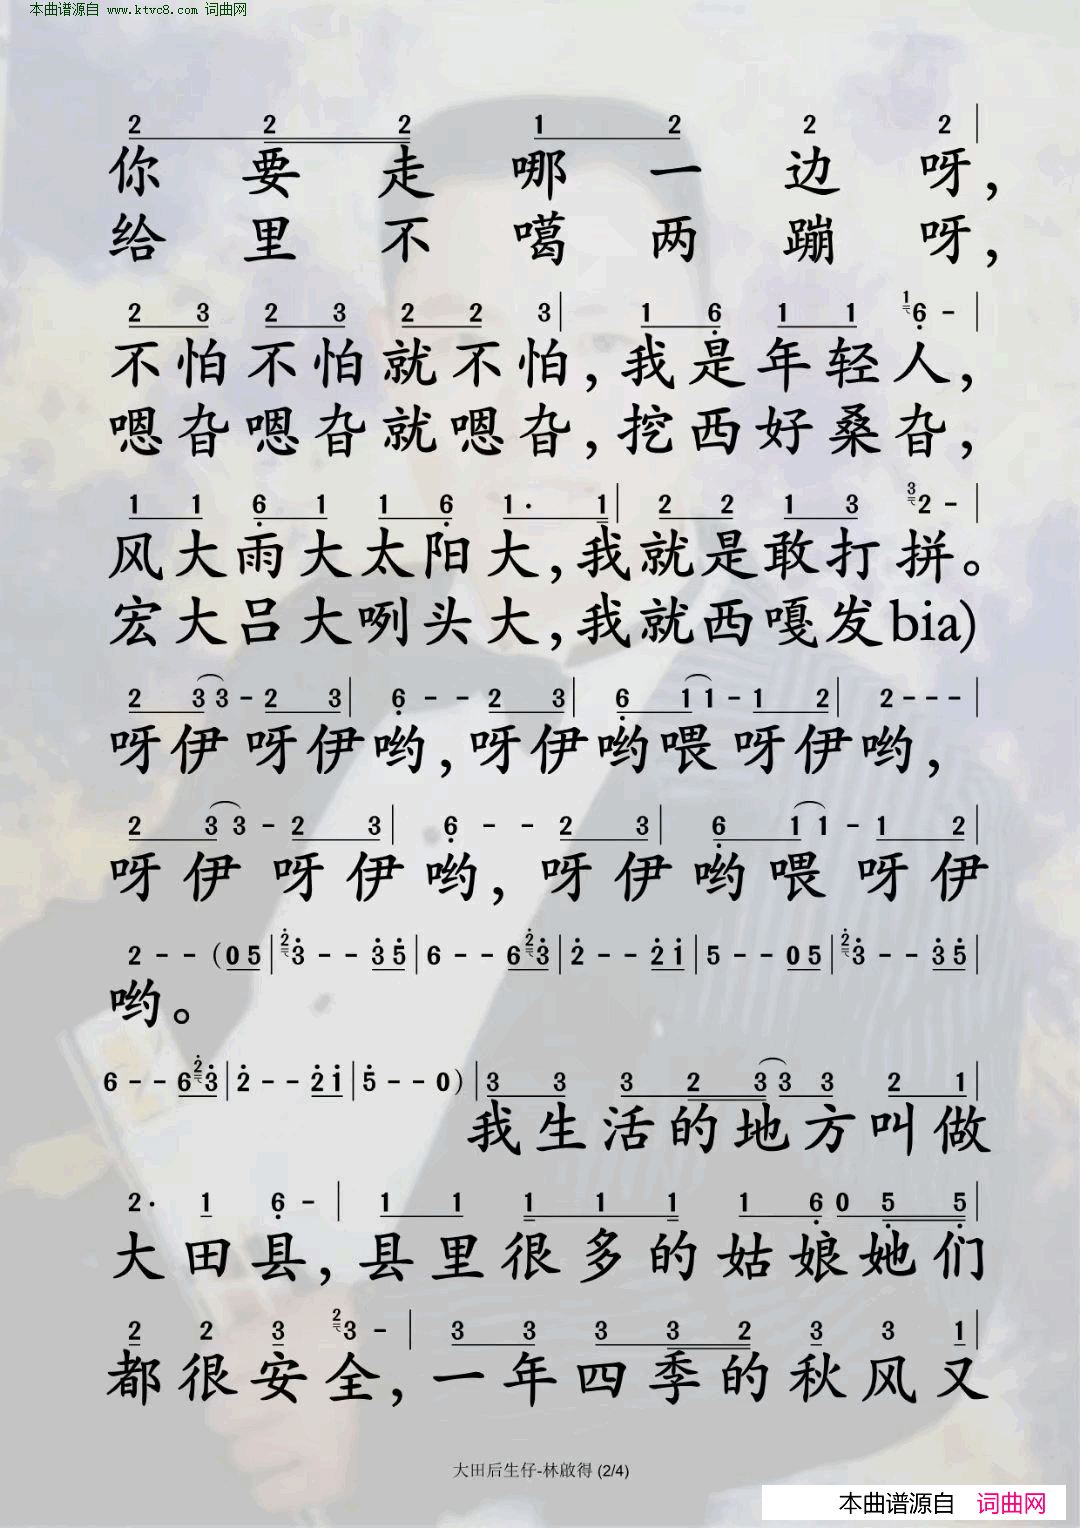 本曲谱源自 www.ktvc8.com 词曲网
2 2 2 1 2 2 2 |
你要走哪一边呀，
给里不噶两蹦呀，
2 3 2 3 2 2 3 | 1 6 1 1 1 6 - |
不怕不怕就不怕，我是年轻人，
嗯旮嗯旮就嗯旮，挖西好桑旮，
1 1 6 1 1 6 1· 1 | 2 2 1 3 3 2 - |
风大雨大太阳大，我就是敢打拼。
宏大吕大咧头大，我就西嘎发bia)
2 3 3 - 2 3 | 6 - - 2 3 | 6 1 1 - 1 2 | 2 - - - |
呀伊 呀伊哟，呀伊哟喂 呀伊哟，
2 3 3 - 2 3 | 6 - - 2 3 | 6 1 1 - 1 2 |
呀伊 呀伊哟，呀伊哟喂 呀伊
2 - - (0 5 | 2 3 - - 3 5 | 6 - - 6 2 3 | 2 - - 2 1 | 5 - - 0 5 | 2 3 - - 3 5 |
哟。
6 - - 6 2 3 | 2 - - 2 1 | 5 - - 0) | 3 3 3 2 3 3 3 2 1 |
我生活的地方叫做
2· 1 6 - | 1 1 1 1 1 1 6 0 5 5 |
大田县，县里很多的姑娘她们
2 2 3 2 3 - | 3 3 3 3 2 3 3 1 |
都很安全，一年四季的秋风又
大田后生仔-林啟得 (2/4)
本曲谱源自 词曲网